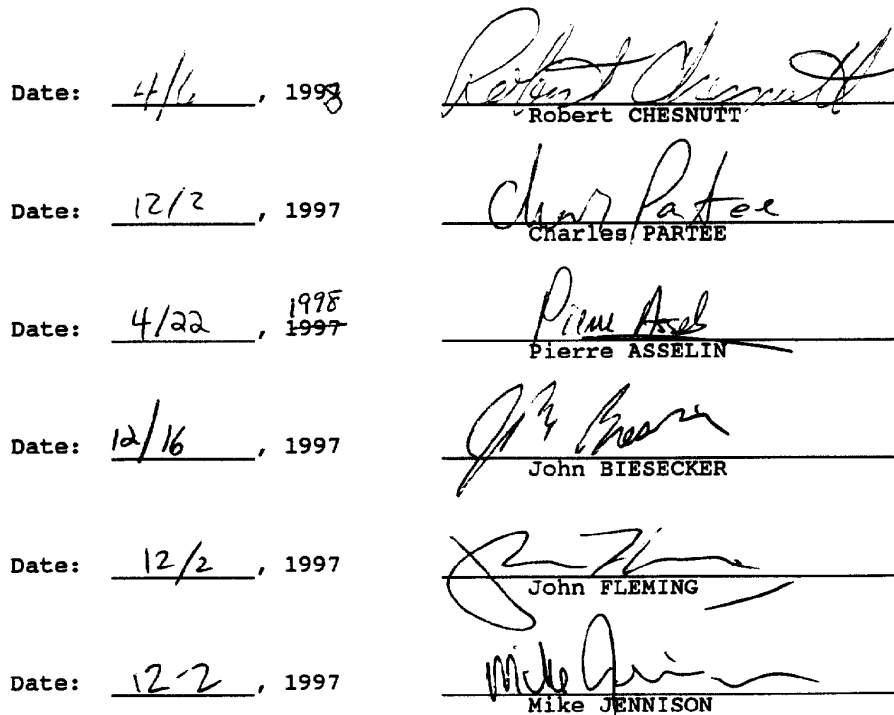 Date: 4/6, 1998 Robert Chesnutt
Robert CHESNUTT
Date: 12/2, 1997 Partee
Charles PARTEE
1998
Date: 4/22, 1997 Pierre Assel
Pierre ASSELIN
Date: 12/16, 1997
John BIESECKER
Date: 12/2, 1997
John FLEMING
Date: 12-2, 1997 Mike
Mike JENNISON